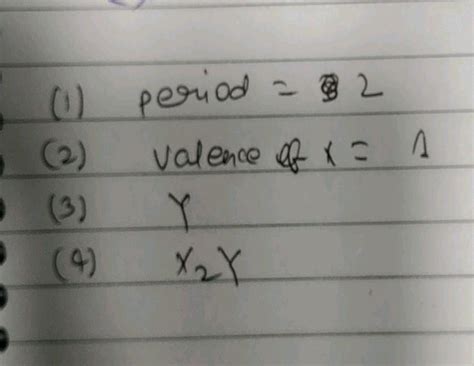 (1) period = 2
(2) valence of x = 1
(3) Y
(4) X₂Y